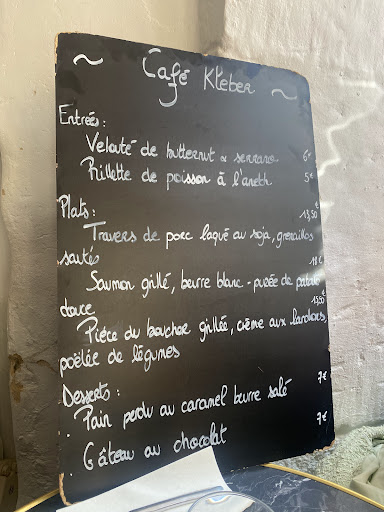 ~ Café Kleber ~
Entrées :
Velouté de butternut & serrano 6€
Rillette de poisson à l'aneth 5€
Plats :
13,50€
Travers de porc laqué au soja, grenailles
sautés
18€
Saumon grillé, beurre blanc - purée de patate
douce
13,50€
Pièce du boucher grillée, crème aux lardons,
poêlée de légumes
Desserts :
. Pain perdu au caramel beurre salé 7€
. Gâteau au chocolat 7€